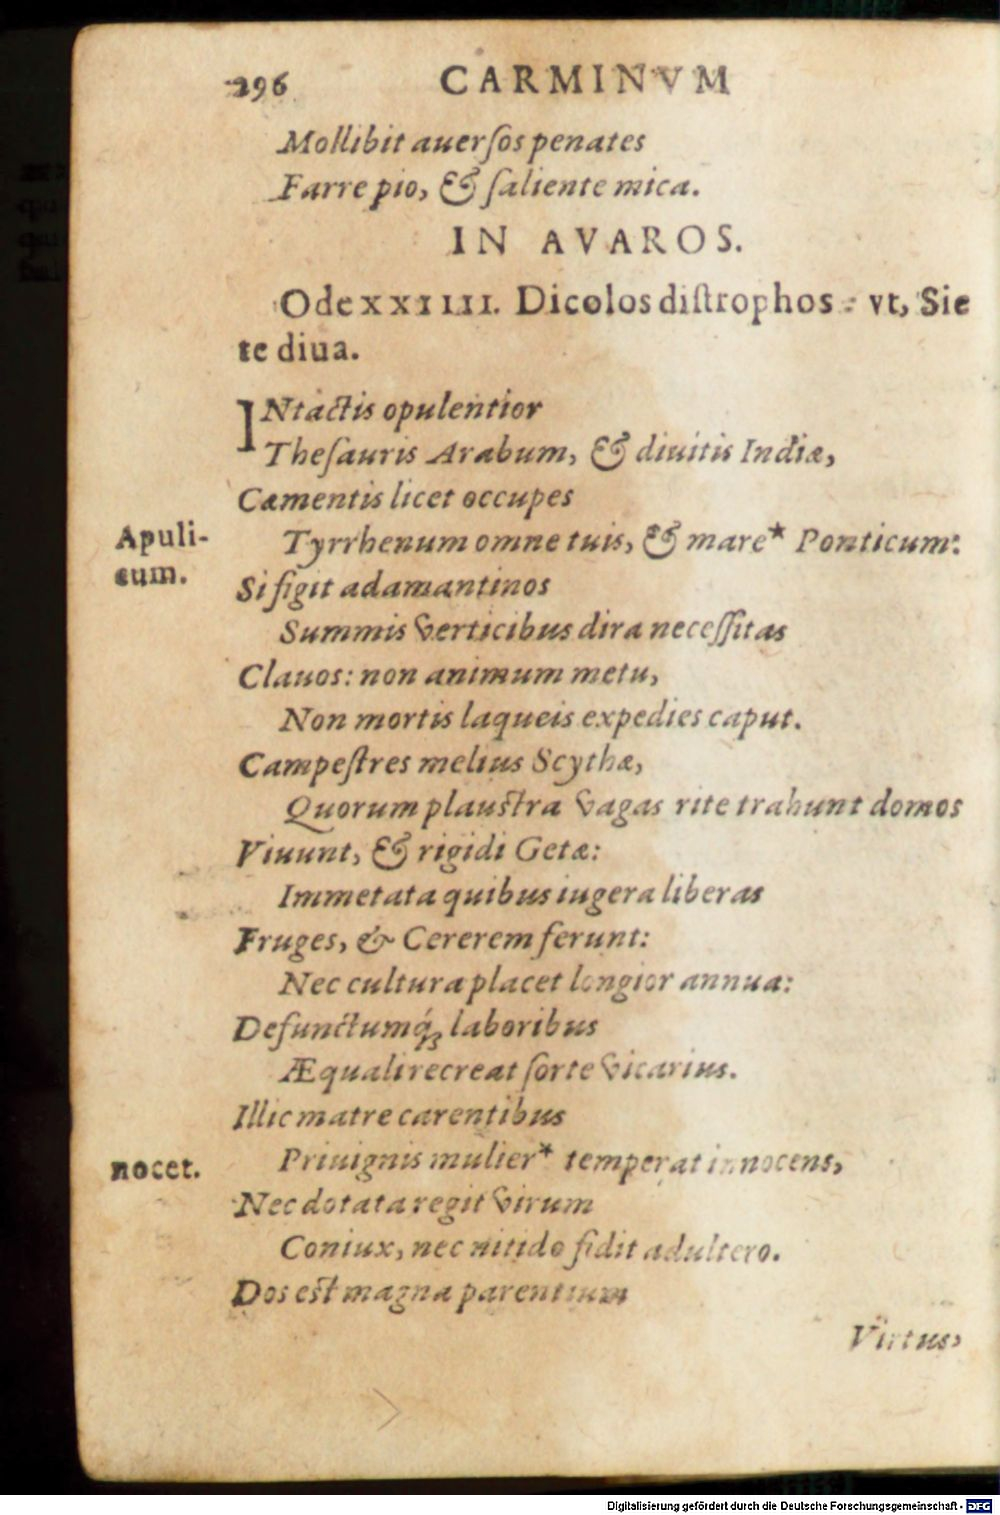 296 CARMINVM
Mollibit auerſos penates
Farre pio, & ſaliente mica.
IN AVAROS.
Ode XXIIII. Dicolos diſtrophos : vt, Sic
te diua.
INtactis opulentior
Theſauris Arabum, & diuitis Indiæ,
Cæmentis licet occupes
Apuli-
cum.
Tyrrhenum omne tuis, & mare* Ponticum:
Si figit adamantinos
Summis verticibus dira neceſſitas
Clauos: non animum metu,
Non mortis laqueis expedies caput.
Campeſtres melius Scythæ,
Quorum plauſtra vagas rite trahunt domos
Viuunt, & rigidi Getæ:
Immetata quibus iugera liberas
Fruges, & Cererem ferunt:
Nec cultura placet longior annua:
Defunctumq́; laboribus
Æquali recreat ſorte vicarius.
Illic matre carentibus
nocet.
Priuignis mulier* temperat innocens,
Nec dotata regit virum
Coniux, nec nitido fidit adultero.
Dos eſt magna parentium
Virtus,
Digitalisierung gefördert durch die Deutsche Forschungsgemeinschaft - DFG